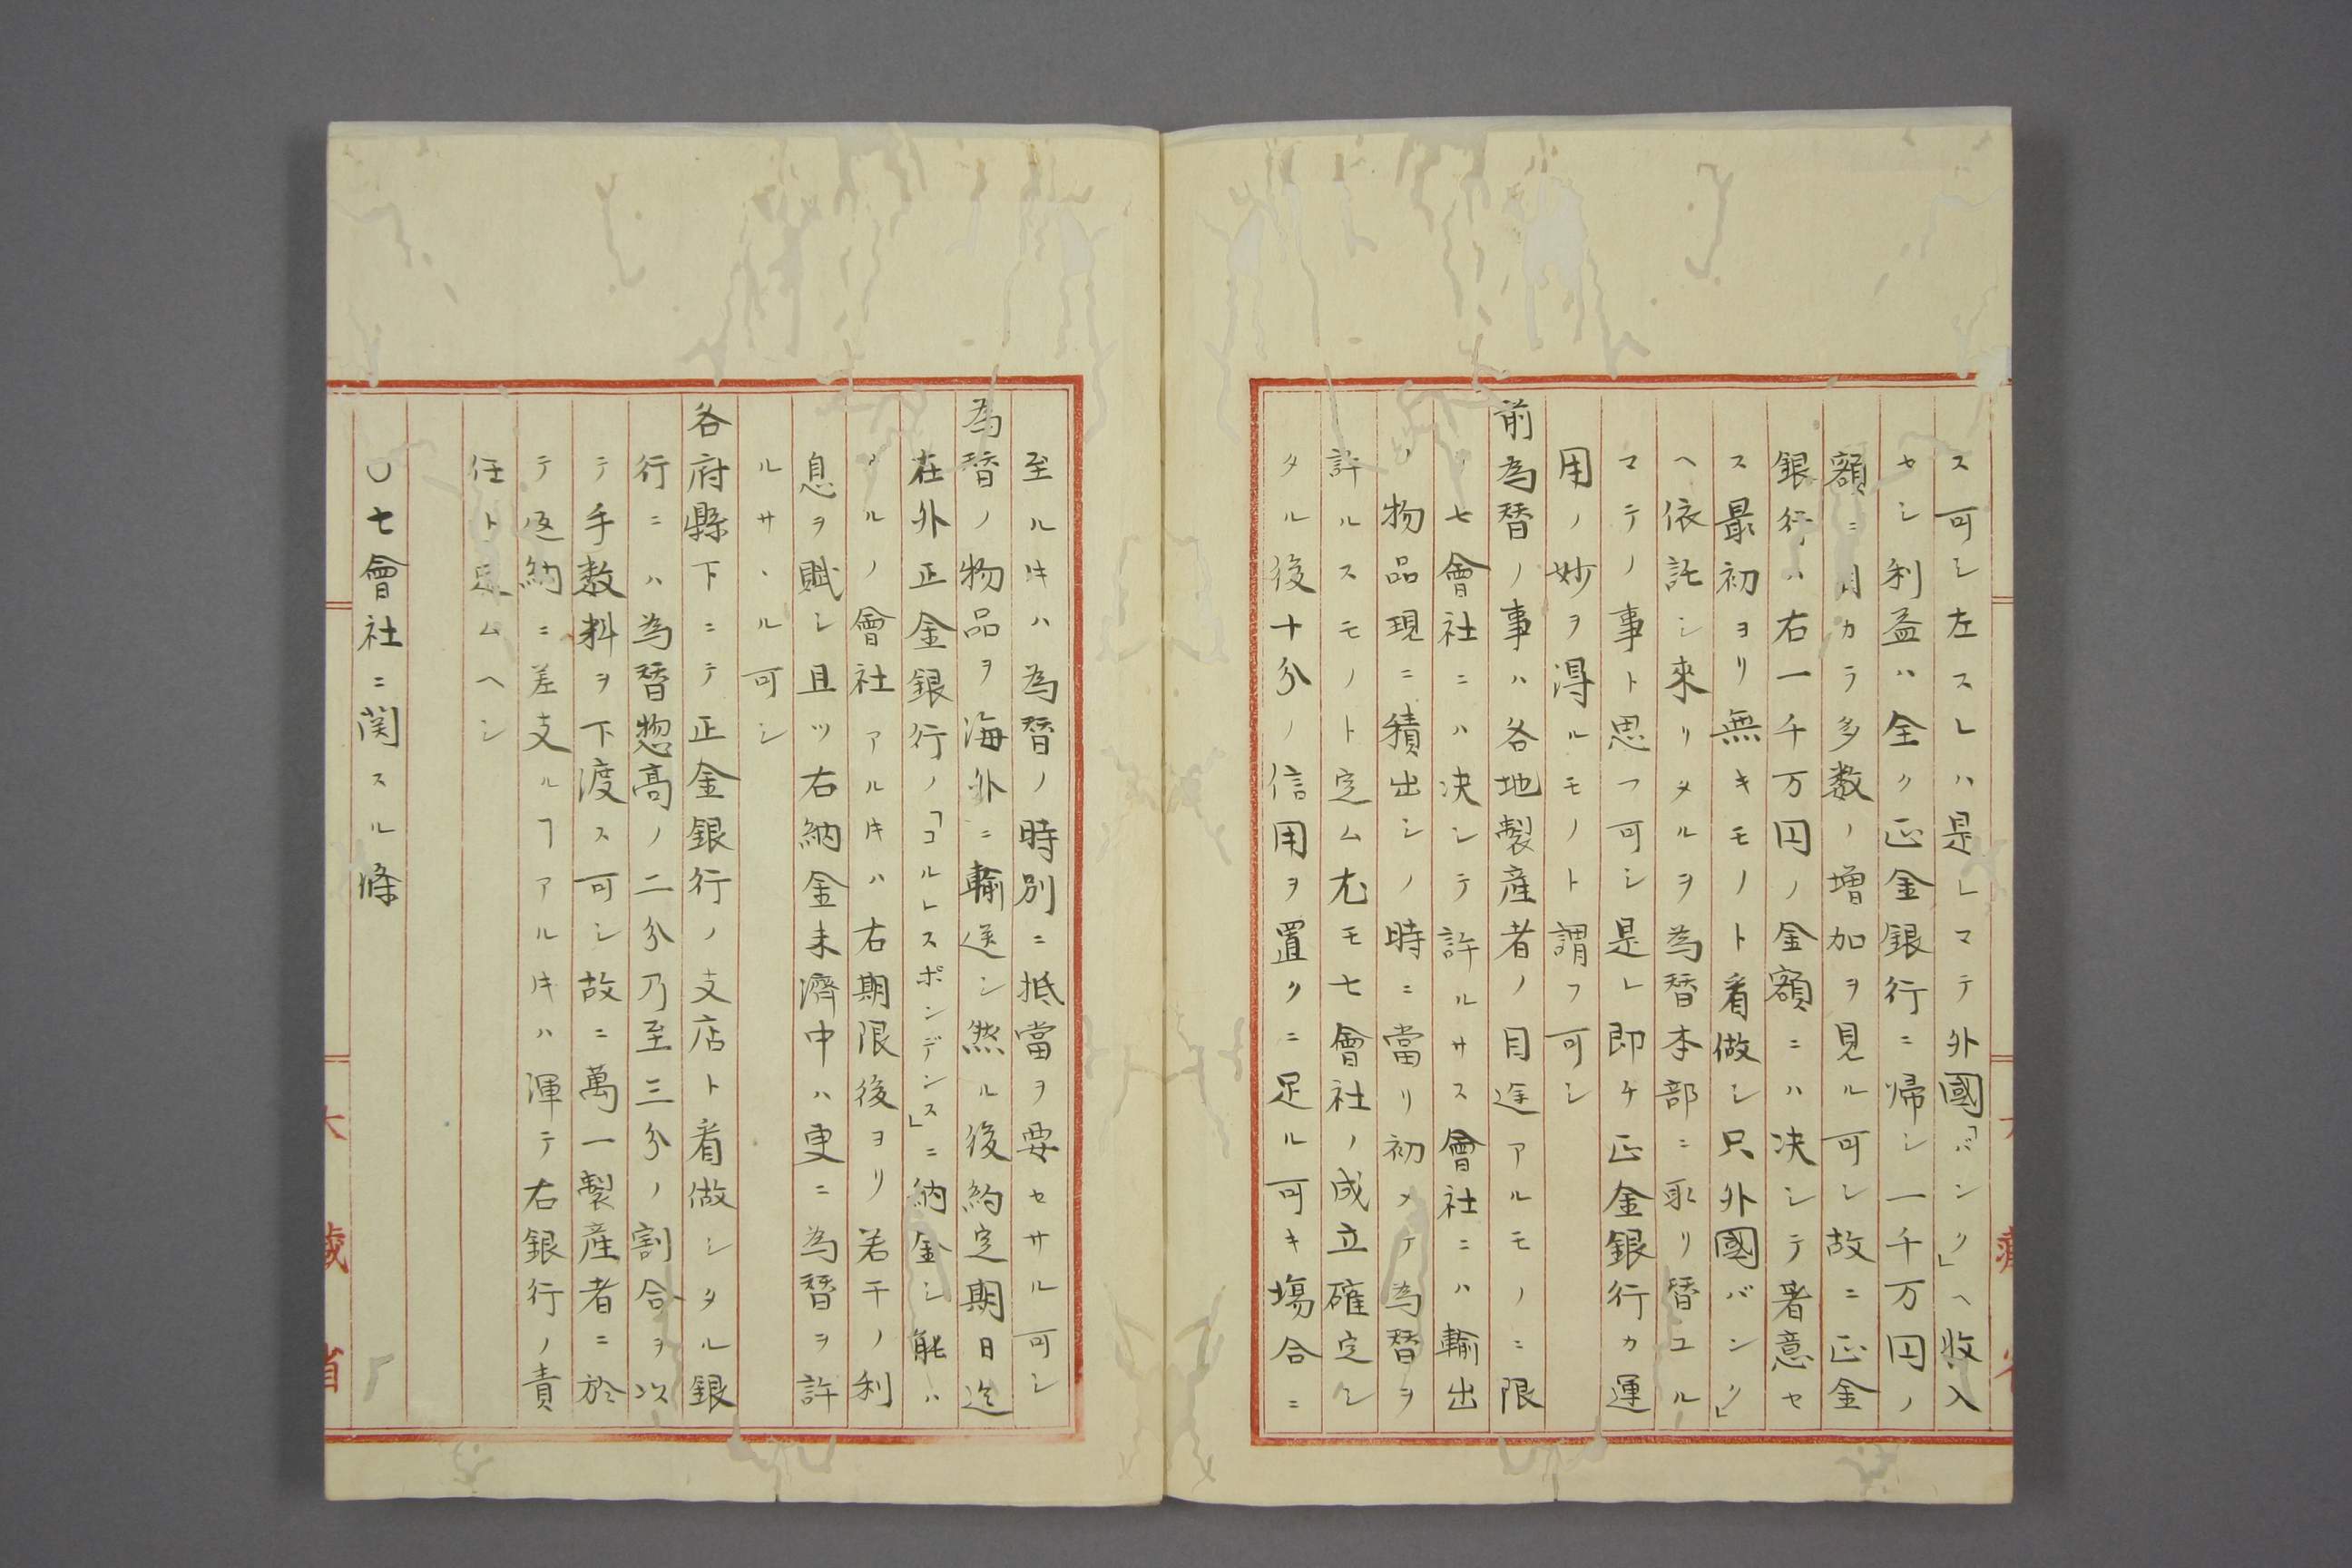 ス可シ左スレハ是レマテ外國「バンク」ヘ收入
セシ利益ハ全ク正金銀行ニ帰シ一千万円ノ
額ニ自カラ多数ノ増加ヲ見ル可シ故ニ正金
銀行ハ右一千万円ノ金額ニハ决シテ著意セ
ス最初ヨリ無キモノト看做シ只外國バンク」
ヘ依託シ來リタルヲ為替本部ニ取リ替ユル
マテノ事ト思フ可シ是レ即チ正金銀行カ運
用ノ妙ヲ得ルモノト謂フ可シ
前為替ノ事ハ各地製産者ノ目途アルモノニ限
リ七會社ニハ决シテ許ルサス會社ニハ輸出
ノ物品現ニ積出シノ時ニ當リ初メテ為替ヲ
許ルスモノト定ム尤モ七會社ノ成立確定シ
タル後十分ノ信用ヲ置クニ足ル可キ塲合ニ
至ルキハ為替ノ時別ニ抵當ヲ要セサル可シ
為替ノ物品ヲ海外ニ輸送シ然ル後約定期日迄
在外正金銀行ノ「コルレスポンデンス」ニ納金シ能ハ
サルノ會社アルキハ右期限後ヨリ若干ノ利
息ヲ賦シ且ツ右納金未濟中ハ更ニ為替ヲ許
ルサヽル可シ
各府縣下ニテ正金銀行ノ支店ト看做シタル銀
行ニハ為替惣髙ノ二分乃至三分ノ割合ヲ以
テ手数料ヲ下渡ス可シ故ニ萬一製産者ニ於
テ返納ニ差支ルヿアルキハ渾テ右銀行ノ責
任ト定ムヘシ
○七會社ニ関スル條
大藏省